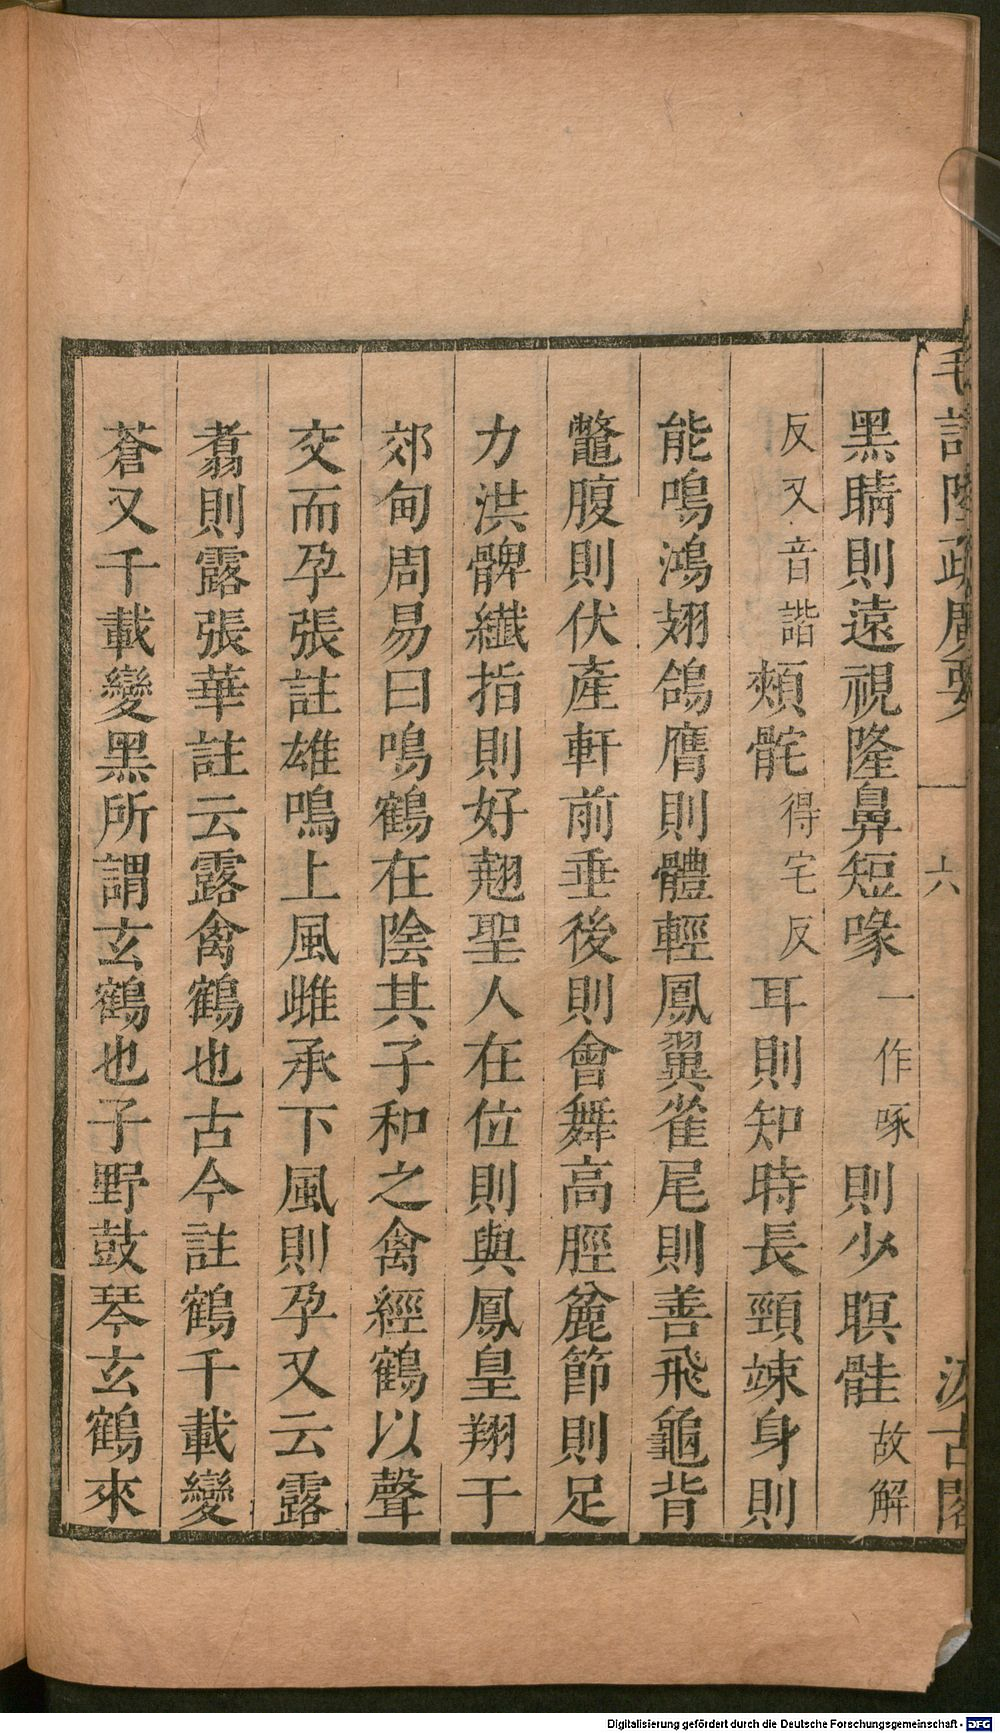 毛詩陸疏廣要　六　汲古閣
黑睛則遠視隆鼻短喙一作啄則少瞑䯓故解
反又音諧頰䯆得宅反耳則知時長頸竦身則
能鳴鴻翅鴿膺則體輕鳳翼雀尾則善飛龜背
鼈腹則伏產軒前垂後則會舞高脛麄節則足
力洪髀纖指則好翹聖人在位則與鳳皇翔于
郊甸周易曰鳴鶴在陰其子和之禽經鶴以聲
交而孕張註雄鳴上風雌承下風則孕又云露
翥則露張華註云露禽鶴也古今註鶴千載變
蒼又千載變黑所謂玄鶴也子野鼓琴玄鶴來
Digitalisierung gefördert durch die Deutsche Forschungsgemeinschaft - DFG